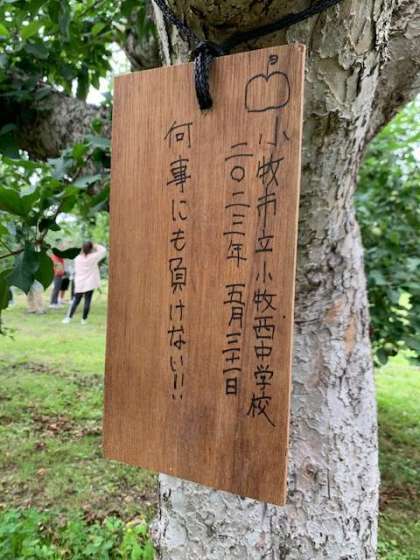 小牧市立小牧西中学校
二〇二三年 五月三十一日
何事にも負けない!!